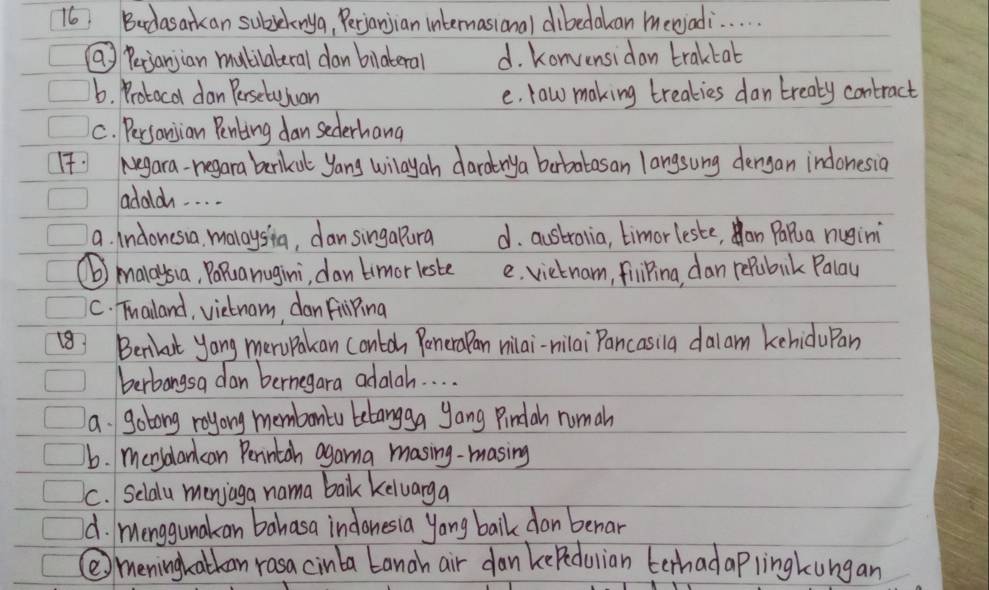 16 Berdasarkan subjeknya, Perjanjian internasional dibedakan menjadi.....
a. Perjanjian multilateral dan bilateral d. konvensi dan traktat
b. Protocol dan Persetujuan e. law making treaties dan treaty contract
c. Perjanjian Penting dan sederhana
17. Negara-negara berikut yang wilayah daratnya berbatasan langsung dengan indonesia
adalah ....
a. indonesia, malaysia, dan singaPura d. australia, timor leste, dan PaPua nugini
b malaysia, PaPuanugini, dan timor leste e. vietnam, filiPina, dan rePublik Palau
c. Thailand, vietnam, dan FiliPina
18 Berikut yang meruPakan contoh PeneraPan nilai-nilai Pancasila dalam kehiduPan
berbangsa dan bernegara adalah....
a. gotong royong membantu tetangga yang Pindah rumah
b. menjalankan Perintah agama masing-masing
c. Selalu menjaga nama baik keluarga
d. menggunakan bahasa indonesia yang baik dan benar
e. meningkatkan rasa cinta tanah air dan kePedulian terhadaP lingkungan